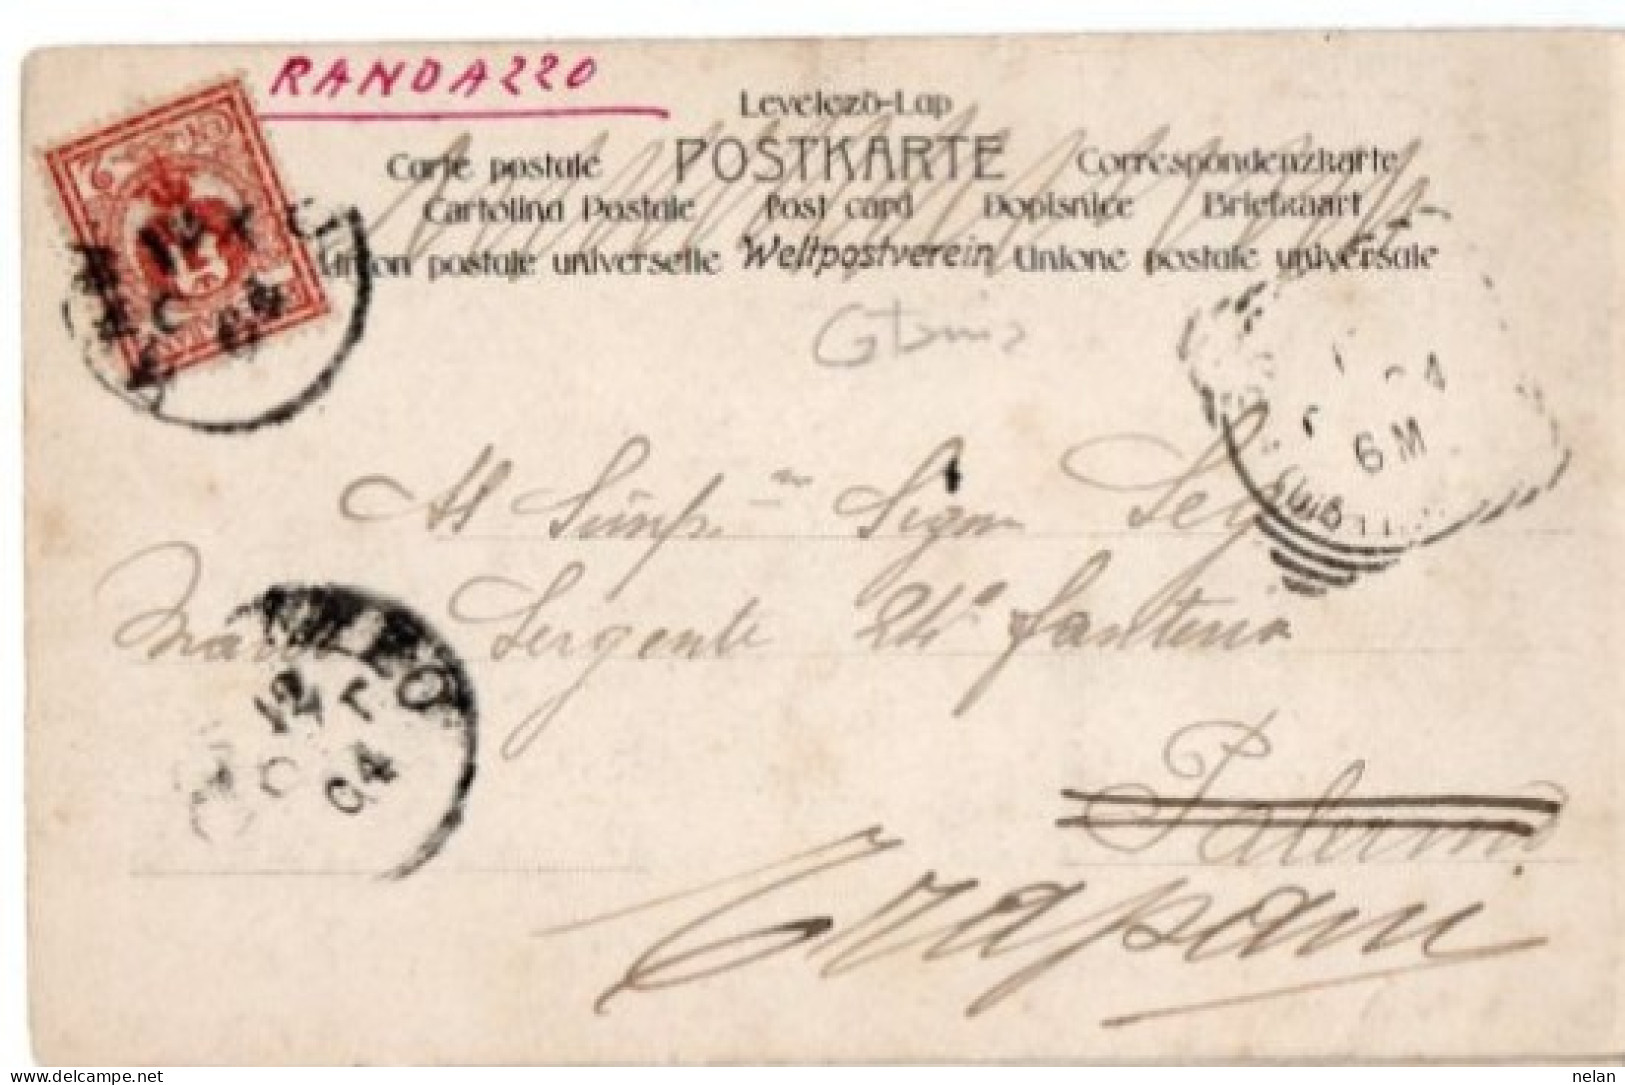 RANDAZZO
Levelezö-Lap
Carte postale POSTKARTE Correspondenzkarte
Cartolina Postale Post card Dopisnice Briefkaart
Union postale universelle Weltpostverein Unione postale universale
6 M
Al Signor
Sergente 24° fanteria
12
04
Palermo
Trapani
nelan